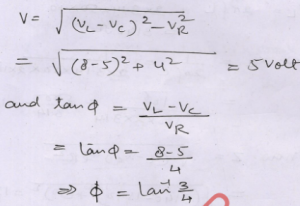 V = √((V_L - V_C)² - V_R²)
= √((8-5)² + 4²) = 5 Volt
and tanφ = (V_L - V_C)/V_R
= tanφ = (8-5)/4
⇒ φ = tan⁻¹ 3/4